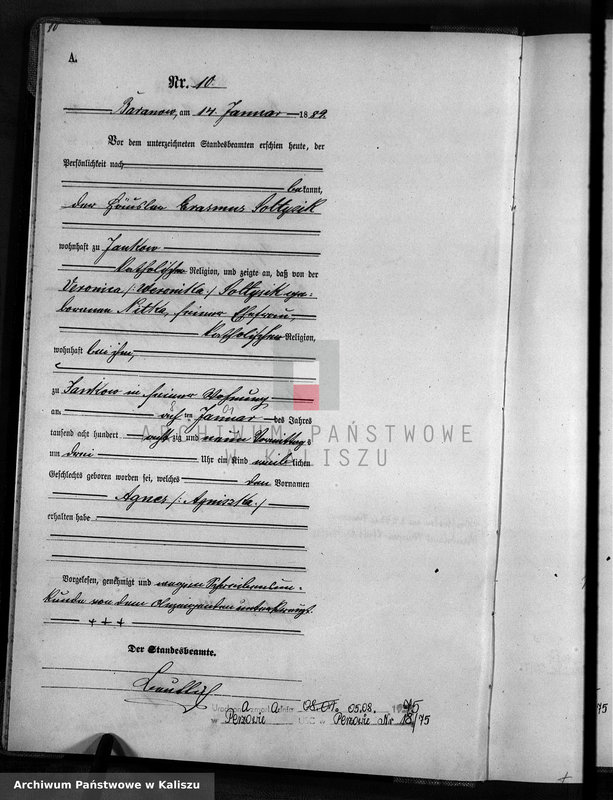 10
A.
Nr. 10.
Baranow, am 14 Januar 1889.
Vor dem unterzeichneten Standesbeamten erschien heute, der
Persönlichkeit nach
bekannt,
der Häusler Erasmus Sołtysik
wohnhaft zu Jankow
katholischer Religion, und zeigte an, daß von der
Veronica /: Weronika :/ Sołtysik ge-
borenen Nitka, seiner Ehefrau,
katholischer Religion,
wohnhaft bei ihm,
zu Jankow in seiner Wohnung
am ten Januar des Jahres
tausend acht hundert acht zig und neun Vormittags
um drei Uhr ein Kind weiblichen
Geschlechts geboren worden sei, welches den Vornamen
Agnes /: Agniszka :/
erhalten habe
Vorgelesen, genehmigt und wegen Schreibensun-
kunde von dem Anzeigenden unterkreuzt.
+ + +
Der Standesbeamte.
A 05.08. 1975
w Perzowie USC w Perzowie Nr 18/75
ARCHIWUM PAŃSTWOWE
W KALISZU
Archiwum Państwowe w Kaliszu